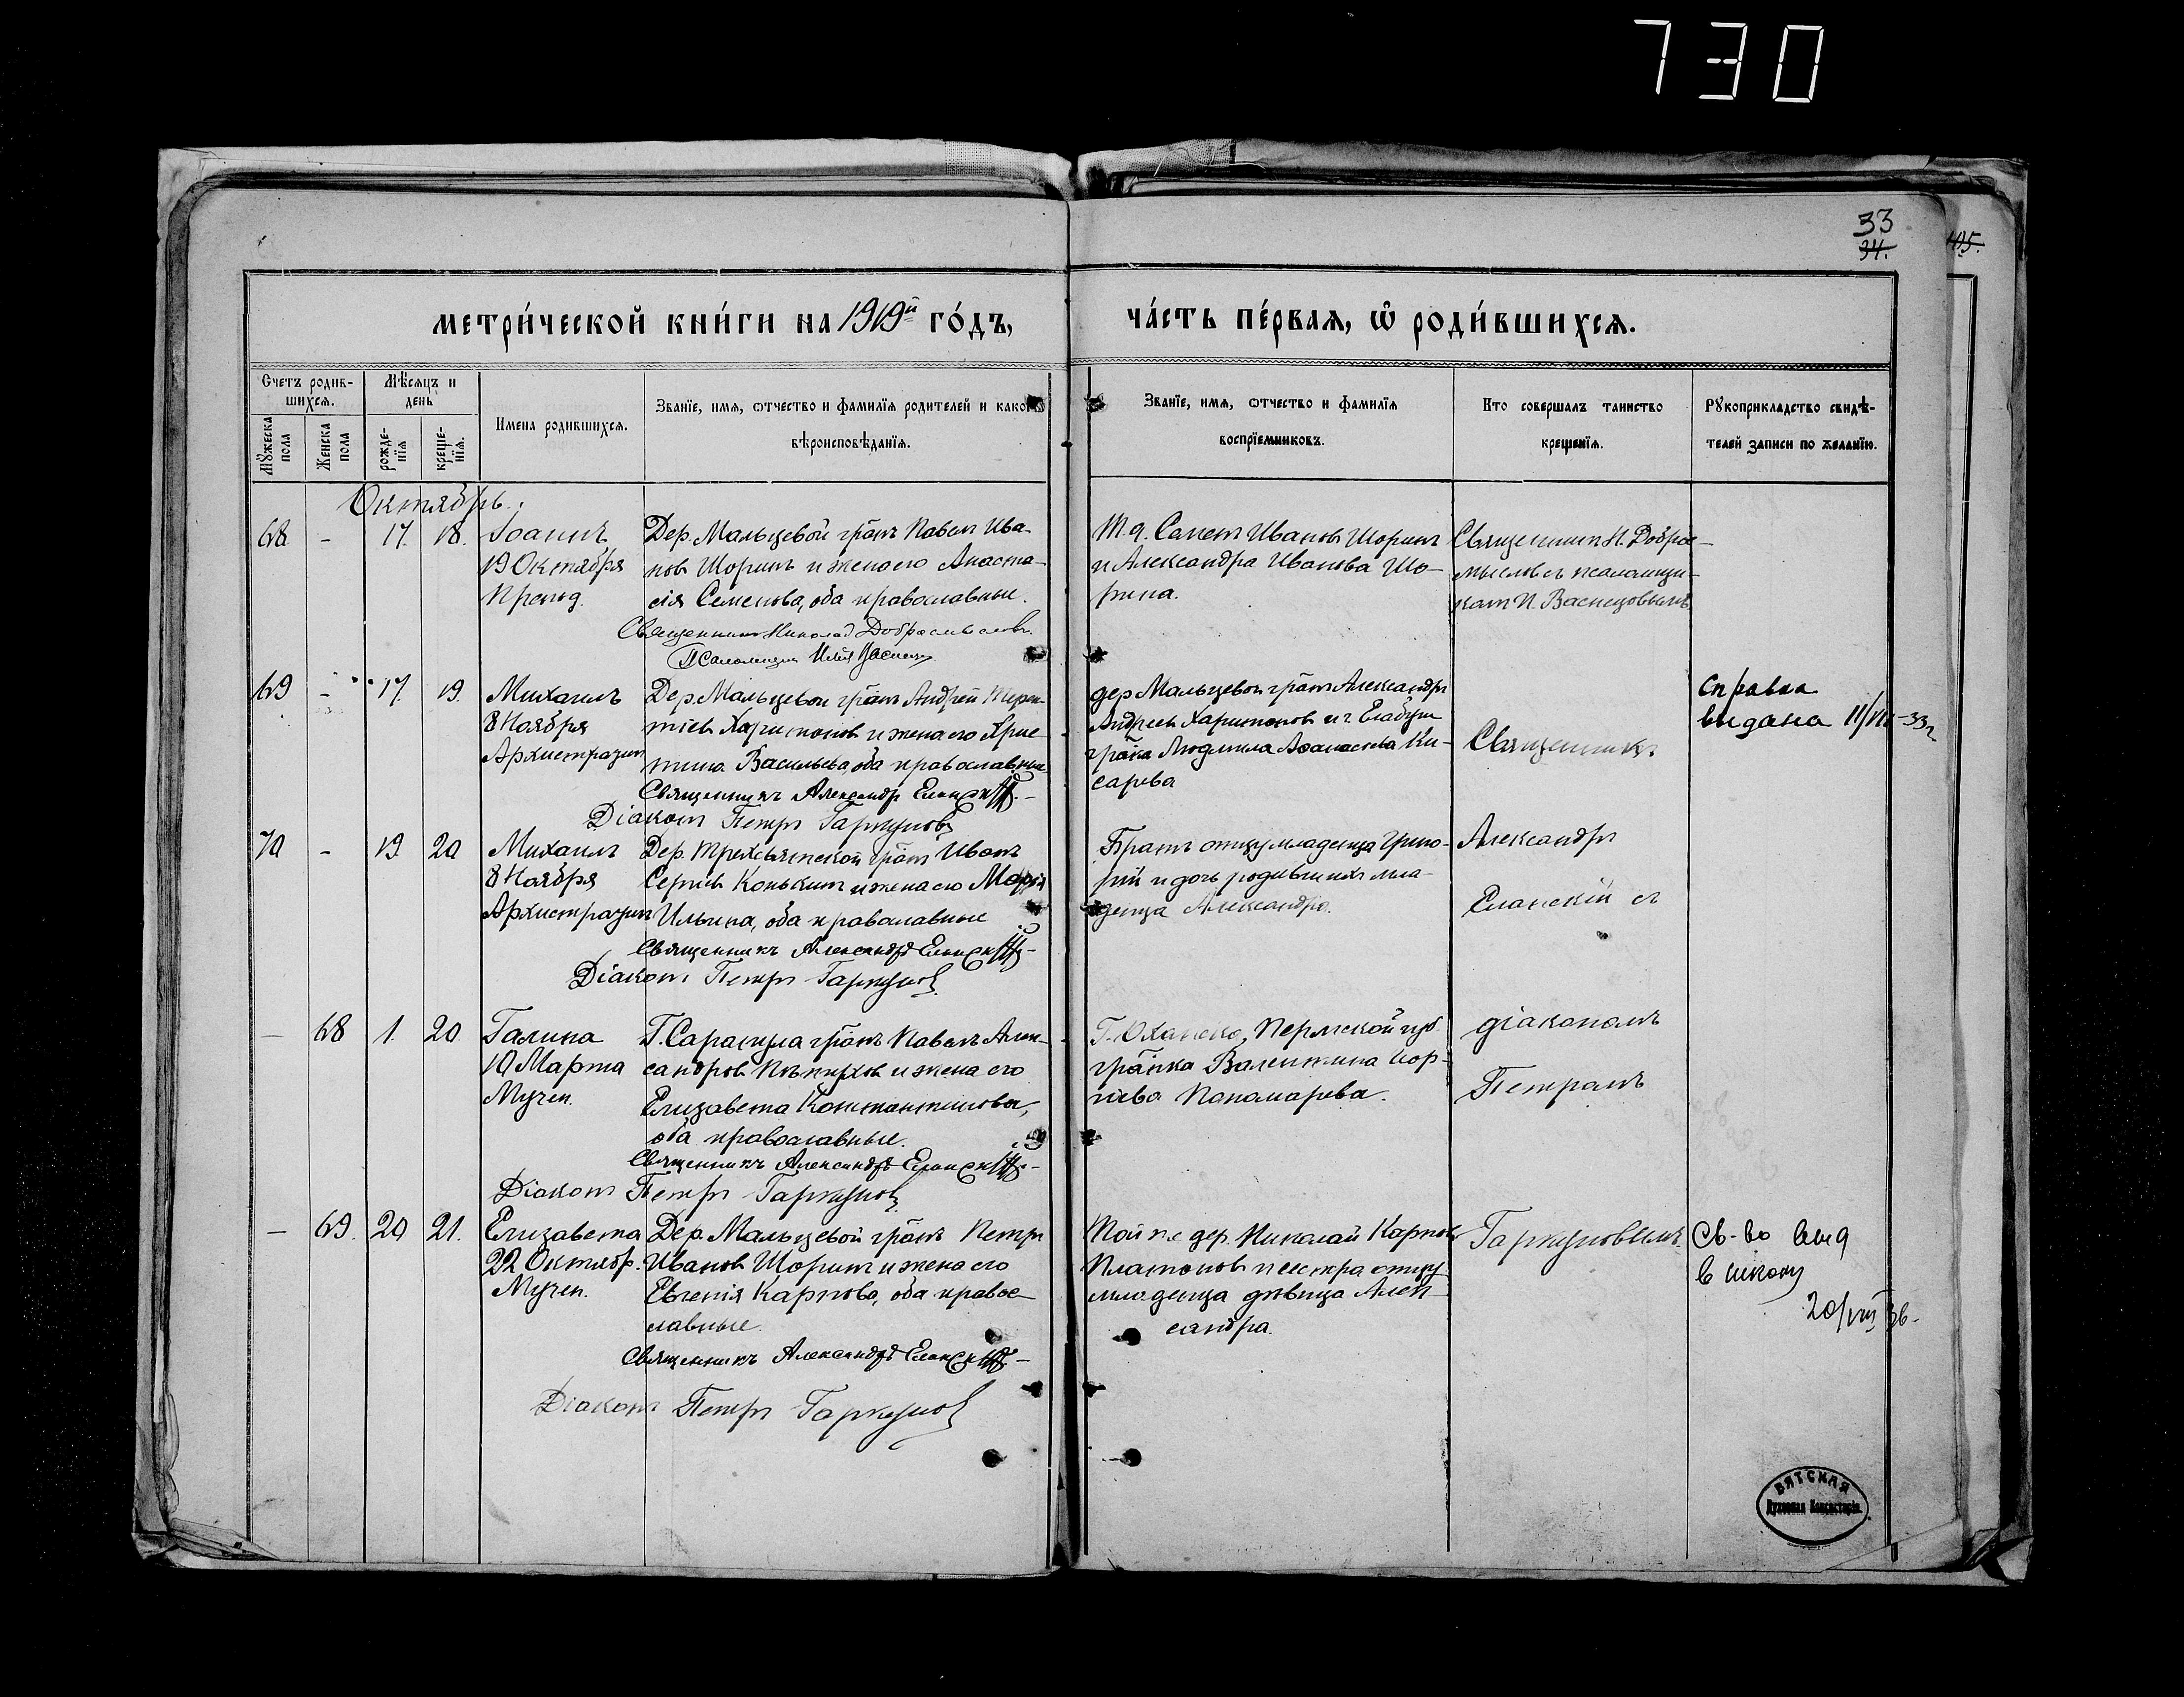 730
33
34.
415.
метри́ческой кни́ги на 1919й го́дъ,
ча́сть пе́рвая, ѡ҆ роди́вшихсѧ.
Счетъ родив-
шихсѧ.
Мѣсѧцъ и
день
Мꙋжеска
пола
Женска
пола
рожде-
нїѧ
креще-
нїѧ.
Имена родившихсѧ.
Званїе, имѧ, ѿтчество и фамилїѧ родителей и какого
вѣроисповѣданїѧ.
Званїе, имѧ, ѿтчество и фамилїѧ
воспрїемниковъ.
Кто совершалъ таинство
крещенїѧ.
Рꙋкоприкладство свидѣ-
телей записи по желанїю.
Октябрь.
68 - 17. 18. Іоаннъ
19 Октября
Препод.
Дер. Мальцевой гр-нъ Павелъ Ива-
новъ Шоринъ и жена его Анаста-
сія Семенова, оба православные.
Священникъ Николай Добросмысловъ.
Псаломщик Илія Васнецовъ
Т. д. Иванов Шоринъ
и Александра Иванова Шо-
рина.
Священник Н. Добро-
мысловъ съ псаломщи-
ком И. Васнецовымъ
69 - 17. 19. Михаилъ
8 Ноября
Архистратиг
Дер. Мальцевой гр-нъ Андрей Терен-
тіев Харитонов и жена его Хрис-
тина Васильева, оба православные
Священникъ Александр Еланскій
Діакон Петръ Гаркунов
дер Мальцевой гр-нъ Александръ
Андреев Харитонов и г. Елабуги
гр-нка Людмила Афанасиева Ки-
сарева
Священникъ
справка
видана 11/VII-33 г
70 - 19. 20 Михаилъ
8 Ноября
Архистратиг
Дер. Трехсвятской гр-нъ Иванъ
Сергіев Конькин и жена его Марія
Ильина, оба православные
Священникъ Александръ Еланскій
Діакон Петръ Гаркунов
Братъ отцу младенца Григо-
рій и дочь родивших мла-
денца Александра.
Александръ
Еланскій съ
- 68 1. 20 Галина
10 Марта
Мучен.
Г. Сарапула гр-нъ Павелъ Алек-
сандров и жена его
Елизавета Константинова,
оба православные.
Священникъ Александръ Еланскій
Діакон Петръ Гаркунов
Г. Оханска, Пермской губ
гр-нка Валентина
Пономарева.
діакономъ
Петромъ
- 69. 20 21. Елизавета
22 Октябр.
Мучен.
Дер. Мальцевой гр-нъ Петръ
Иванов Шорин и жена его
Евгенія Карпова, оба право-
славные.
Священникъ Александръ Еланскій
Діакон Петръ Гаркунов
Той же дер. Николай Карпов
Платонов и сестра отцу
младенца дѣвица Алек-
сандра.
Гаркуновымъ.
Св-во выд
в школу
20/VIII 36-
ВЯТСКАЯ
Духовная Консисторія.